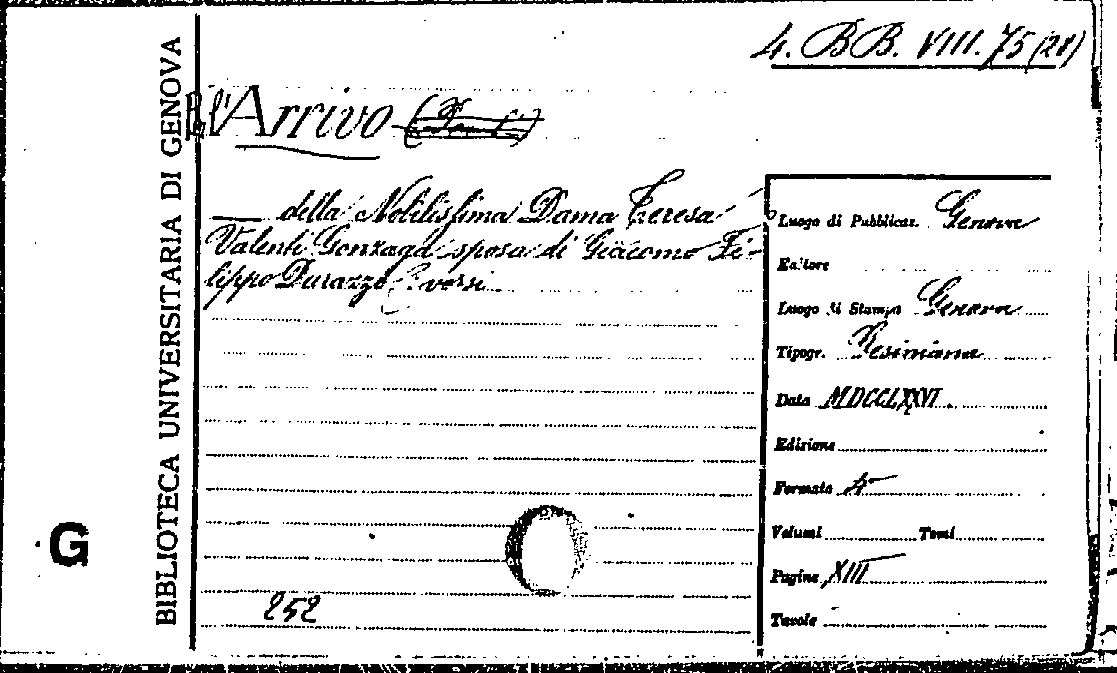 4. BB. VIII. 75 (28)
BIBLIOTECA UNIVERSITARIA DI GENOVA
l'Arrivo
— della Nobilissima Dama Teresa
Valenti Gonzaga sposa di Giacomo Fi-
lippo Durazzo versi
252
G
Luogo di Pubblicaz. Genova
Editore
Luogo di Stampa Genova
Tipogr. Gesiniana
Data MDCCLXXVI
Edizione
Formato 4°
Volumi Tomi
Pagine XIII
Tavole